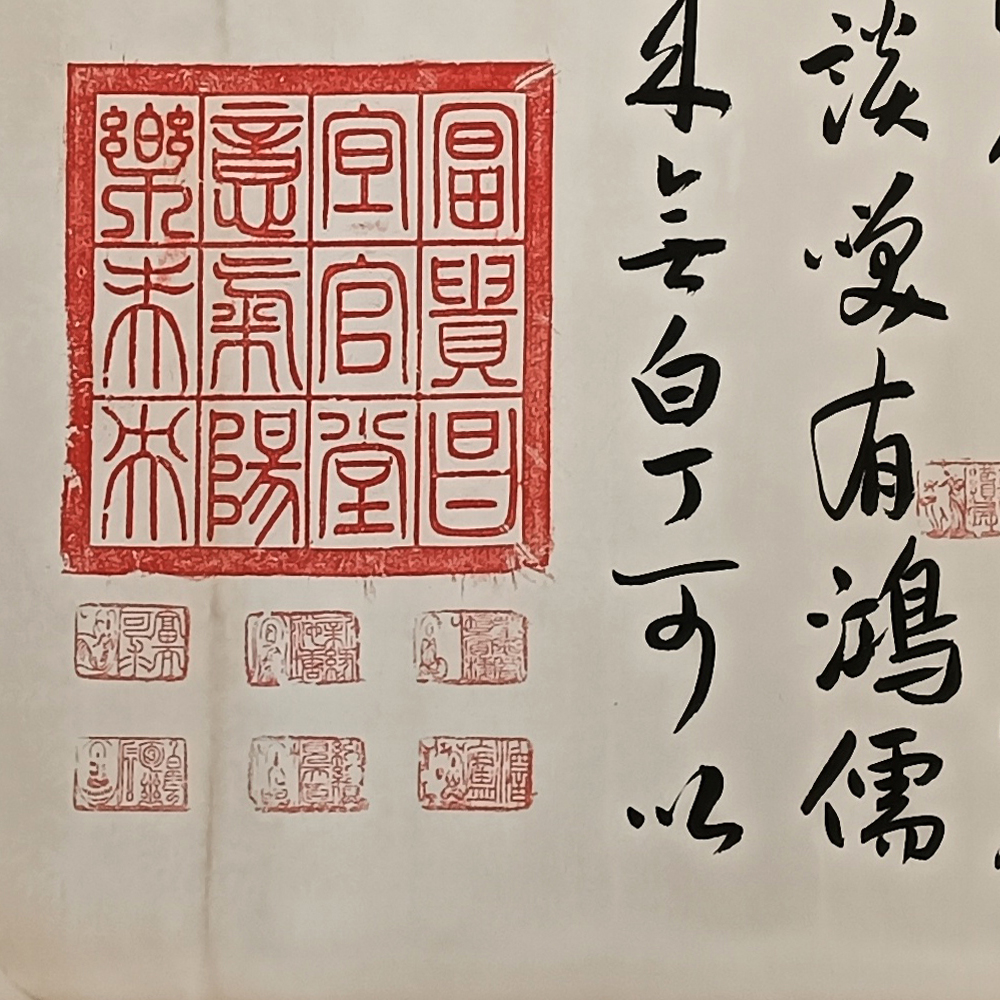 談笑有鴻儒
来無白丁可以
富貴昌
宜官堂
意氣陽
樂未央